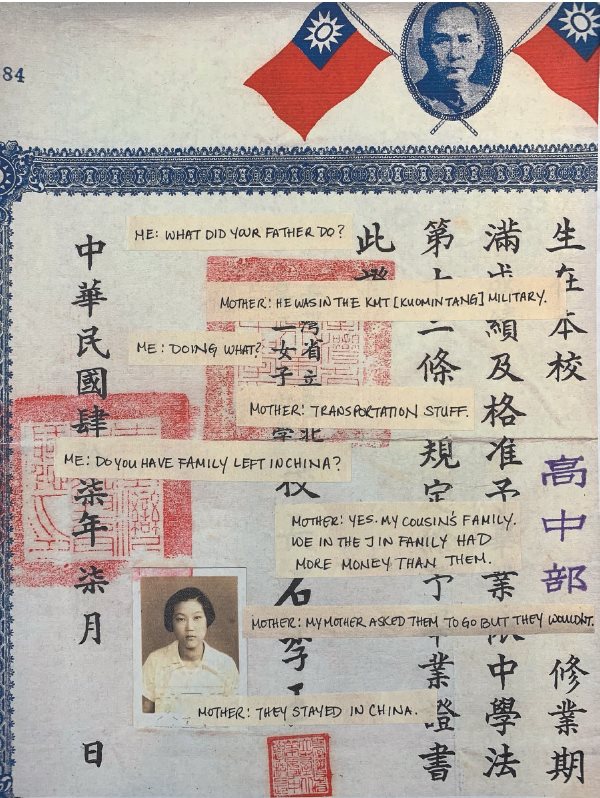 84
生在本校高中部修業期
滿成績及格准予業中學法
第二條規定業證書
此
灣省立北
一女子學
校
中華民國肆柒年柒月日
ME: WHAT DID YOUR FATHER DO?
MOTHER: HE WAS IN THE KMT [KUOMINTANG] MILITARY.
ME: DOING WHAT?
MOTHER: TRANSPORTATION STUFF.
ME: DO YOU HAVE FAMILY LEFT IN CHINA?
MOTHER: YES. MY COUSIN'S FAMILY.
WE IN THE JIN FAMILY HAD
MORE MONEY THAN THEM.
MOTHER: MY MOTHER ASKED THEM TO GO BUT THEY WOULDN'T.
MOTHER: THEY STAYED IN CHINA.